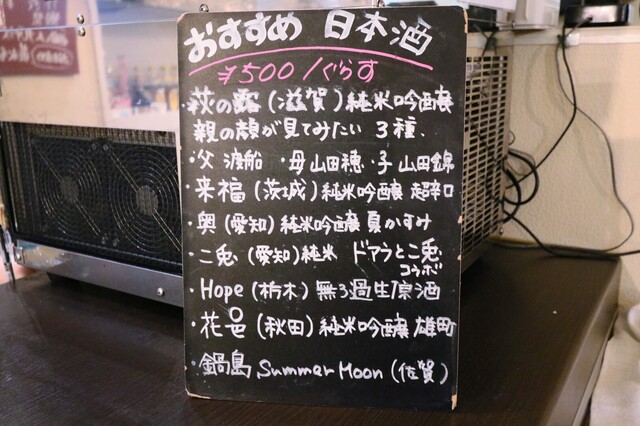 おすすめ 日本酒
¥500/ぐらす
萩の露(滋賀)純米吟醸
親の顔が見てみたい 3種、
・父 渡船 ・母 山田穂・子 山田錦
・来福(茨城)純米吟醸 超辛口
・奥(愛知)純米吟醸 夏かすみ
・二兎(愛知)純米 ドアラと二兎
コラボ
・Hope(栃木)無ろ過生原酒
・花邑(秋田)純米吟醸 雄町
・鍋島 Summer Moon(佐賀)